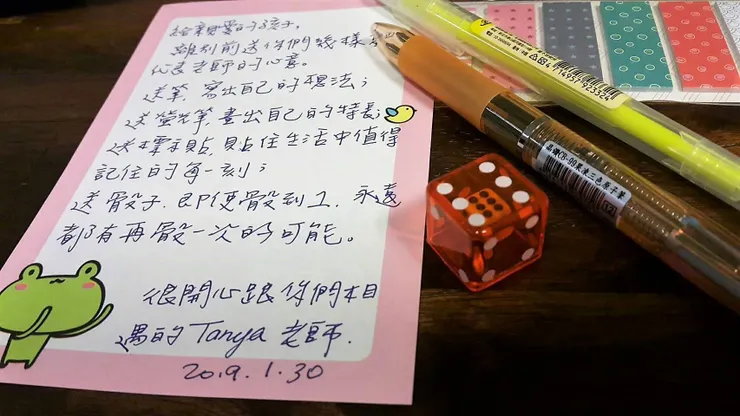 給親愛的孩子,
離別前送你們幾樣
代表老師的心意。
送筆,寫出自己的想法;
送螢光筆,畫出自己的特長;
送標貼,貼住生活中值得
記住的每一刻;
送骰子,即使骰到1,永遠
都有再骰一次的可能。
很開心跟你們相
遇的Tanya老師.
2019.1.30
CB-99果凍三色原子筆